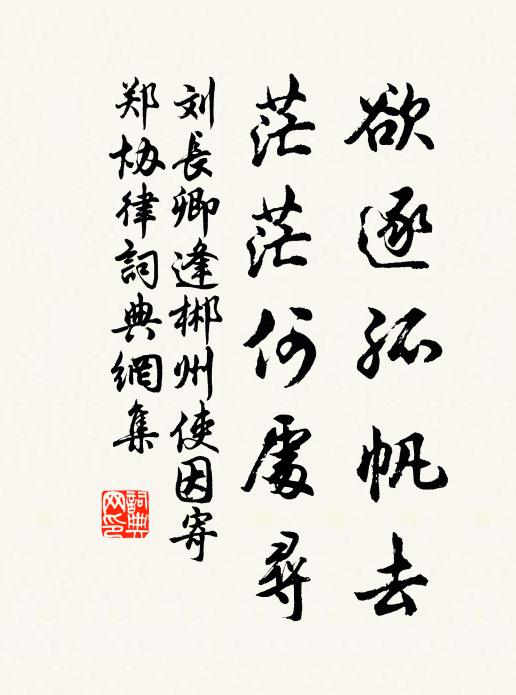 欲逐孤帆去
茫茫何處尋
刘長卿逢郴州使因寄
郑协律詞典網集
詞典网印